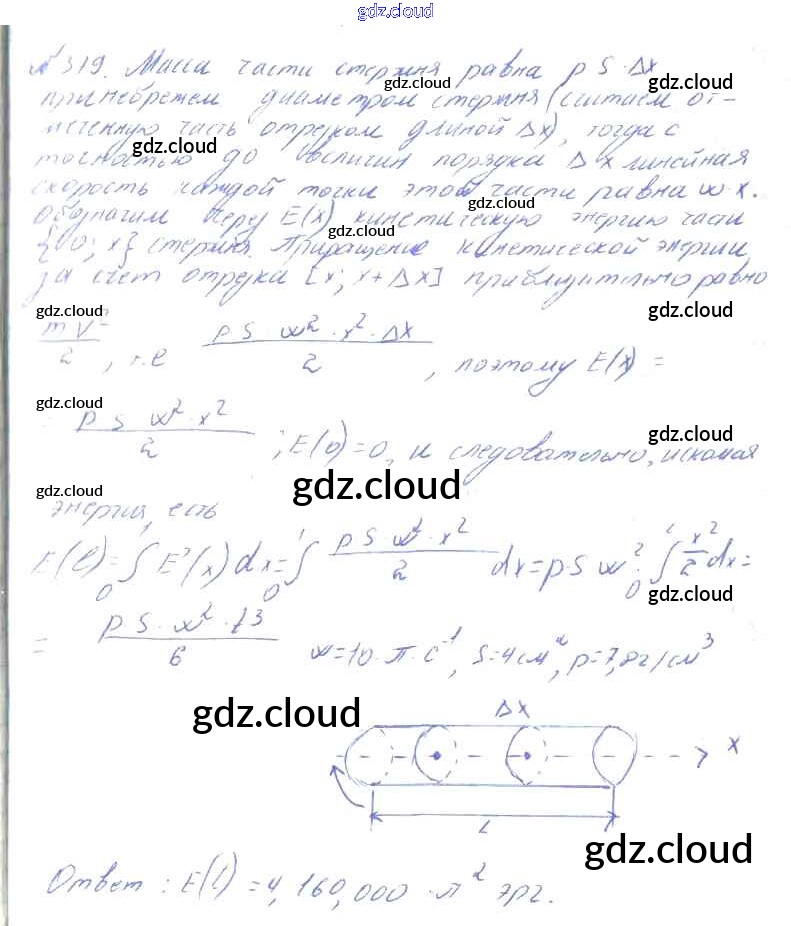 gdz.cloud
№ 319. Масса части стержня равна ρ S · Δx
gdz.cloud
пренебрежем диаметром стержня (считаем от-
gdz.cloud
меченную часть отрезком длиной Δx), тогда с
gdz.cloud
точностью до величин порядка Δx линейная
gdz.cloud
скорость каждой точки этой части равна w·x.
gdz.cloud
Обозначим через E(x) кинетическую энергию части
[0; x] стержня. Приращение кинетической энергии
за счет отрезка [x; x + Δx] приблизительно равно
gdz.cloud gdz.cloud
mV²/2, т.е ρ S · w² · x² · Δx / 2, поэтому E'(x) =
gdz.cloud
ρ S w² · x² / 2; E(0)=0, и следовательно, искомая
gdz.cloud
gdz.cloud
gdz.cloud
энергия есть
E(l)=∫₀ˡ E'(x)dx=∫₀ˡ ρ S · w² · x² / 2 dx=ρ·S w² · ∫₀ˡ x²/2 dx=
gdz.cloud
= ρ S · w² · l³ / 6 w=10·π·c⁻¹, S=4см², ρ=7,8г/см³
gdz.cloud
Δx
x
L
gdz.cloud
Ответ : E(l) = 4,160,000 · π² эрг.